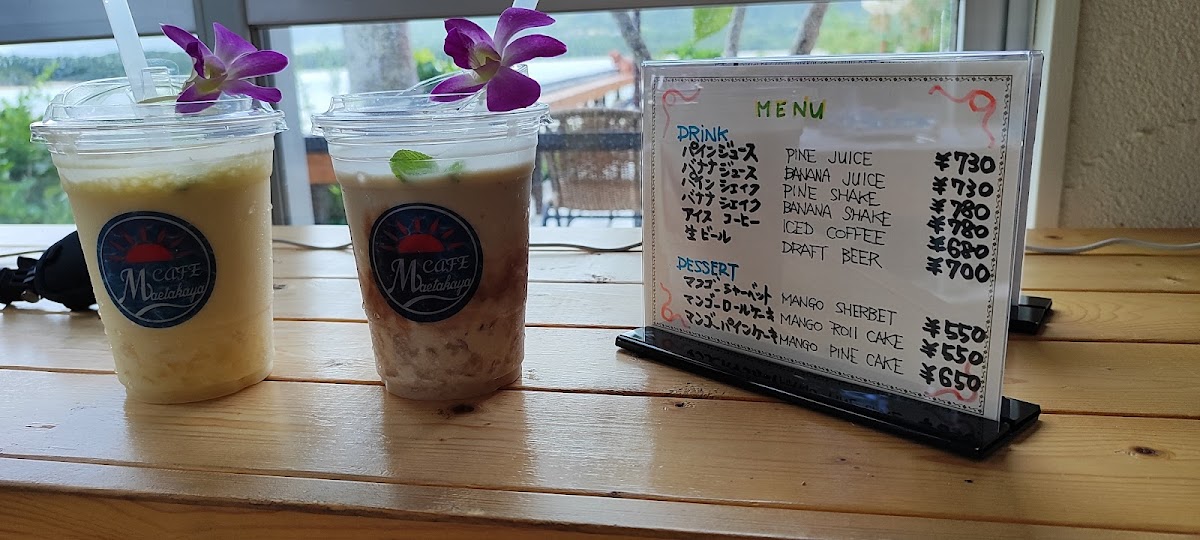 CAFE
Maetakaya
CAFE
Maetakaya
MENU
DRINK
パインジュース PINE JUICE ¥730
バナナジュース BANANA JUICE ¥730
パインシェイク PINE SHAKE ¥780
バナナシェイク BANANA SHAKE ¥780
アイスコーヒー ICED COFFEE ¥680
生ビール DRAFT BEER ¥700
DESSERT
マンゴーシャーベット MANGO SHERBET ¥550
マンゴーロールケーキ MANGO ROll CAKE ¥550
マンゴーパインケーキ MANGO PINE CAKE ¥650